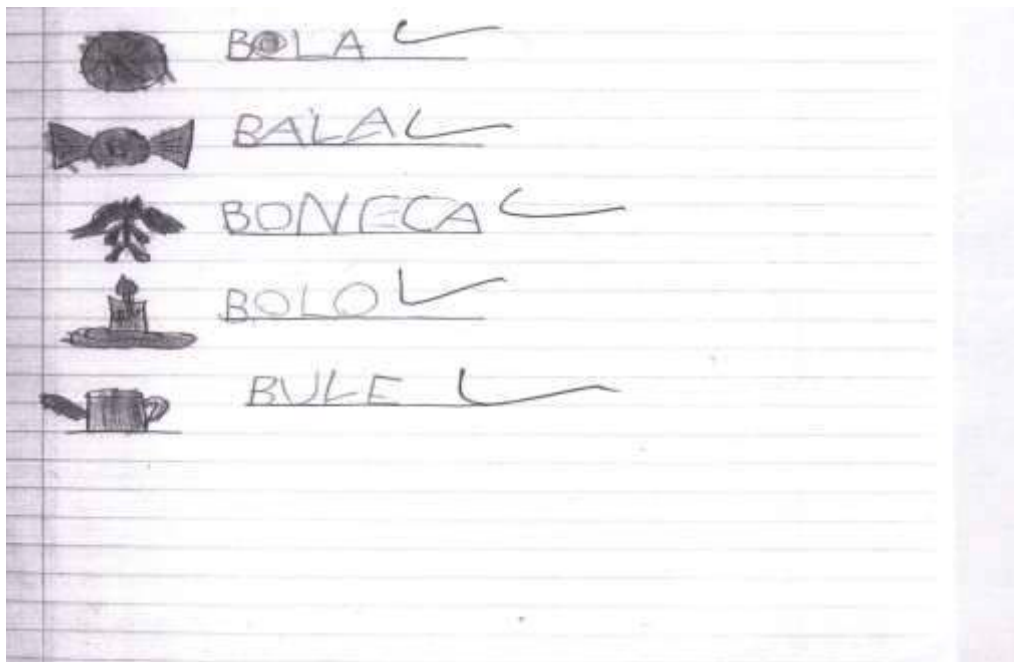 BOLA
BALA
BONECA
BOLO
BULE